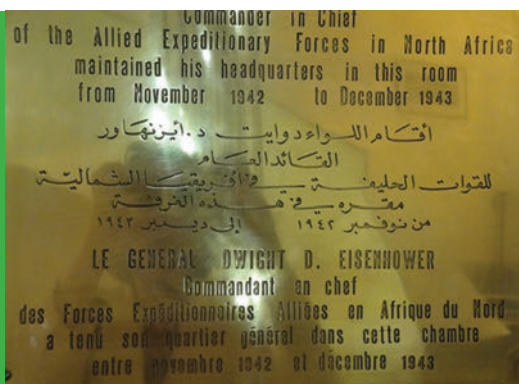 Commander in Chief
of the Allied Expeditionary Forces in North Africa
maintained his headquarters in this room
from November 1942 to December 1943
أقام اللواء دوايت د. أيزنهاور
القائد العام
للقوات الحليفة في افريقيا الشمالية
مقره في هذه الغرفة
من نوفمبر ١٩٤٢ إلى ديسمبر ١٩٤٣
LE GENERAL DWIGHT D. EISENHOWER
Commandant en chef
des Forces Expéditionnaires Alliées en Afrique du Nord
a tenu son quartier général dans cette chambre
entre novembre 1942 et décembre 1943